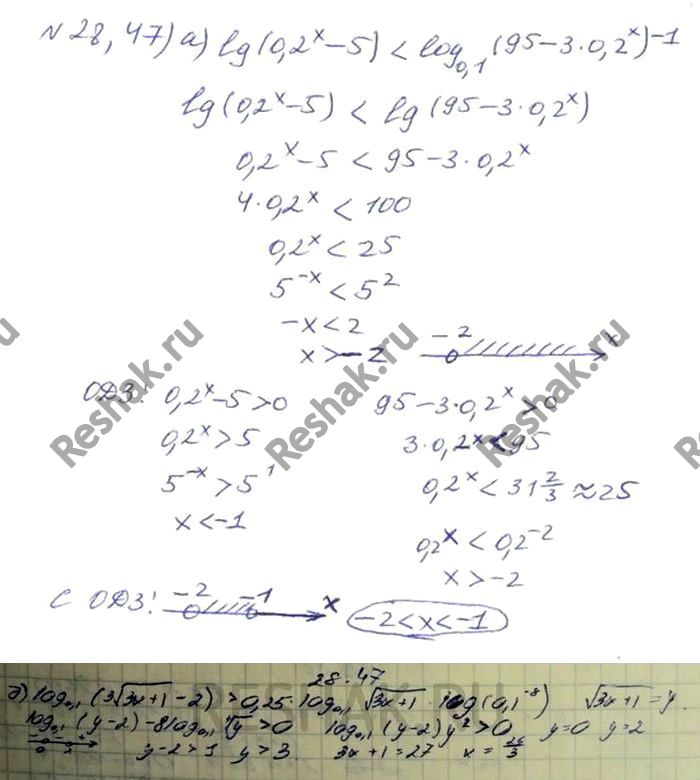 N 28,47) а) lg(0,2^x−5) < log_{0,1}(95−3·0,2^x)^{−1}
lg(0,2^x−5) < lg(95−3·0,2^x)
0,2^x−5 < 95−3·0,2^x
4·0,2^x < 100
0,2^x < 25
5^{−x} < 5^2
−x < 2
x > −2 −2 x
ОДЗ: 0,2^x−5>0 95−3·0,2^x>0
0,2^x > 5 3·0,2^x < 95
5^{−x} > 5^1 0,2^x < 31 2/3 ≈ 25
x < −1 0,2^x < 0,2^{−2}
x > −2
С ОДЗ: −2 −1 x −2<x<−1
28.47
log_{0,1}(3√3x+1 −2) > 0,25·log_{0,1} √3x+1 · log(0,1^{−8}) √3x+1 = y
log_{0,1}(y−2) −8log_{0,1} y > 0 log_{0,1}(y−2)y^2 > 0 y=0 y=2
0 2 y−2>1 y>3 3x+1=27 x = 26/3
Reshak.ru
Reshak.ru
Reshak.ru
RESHAK.RU